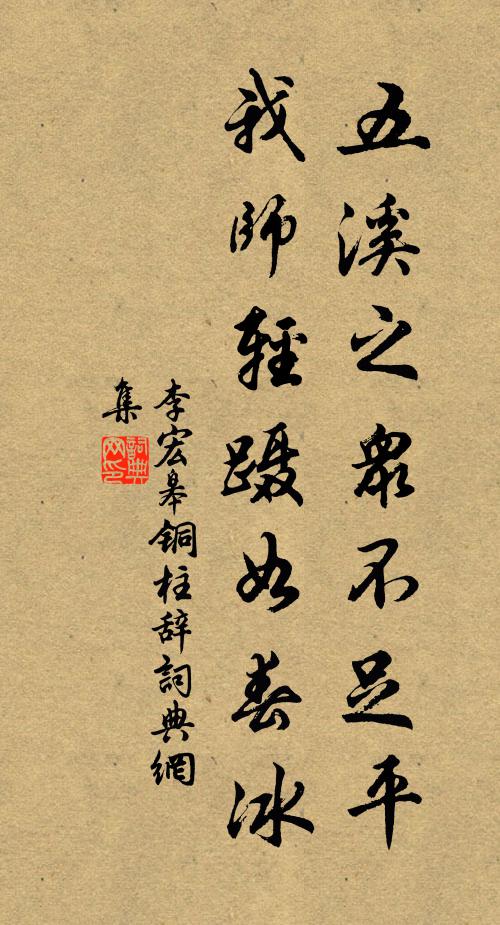 五溪之眾不足平
我師輕蹑如春冰
李宏皋铜柱辞詞典網
集
詞典網印